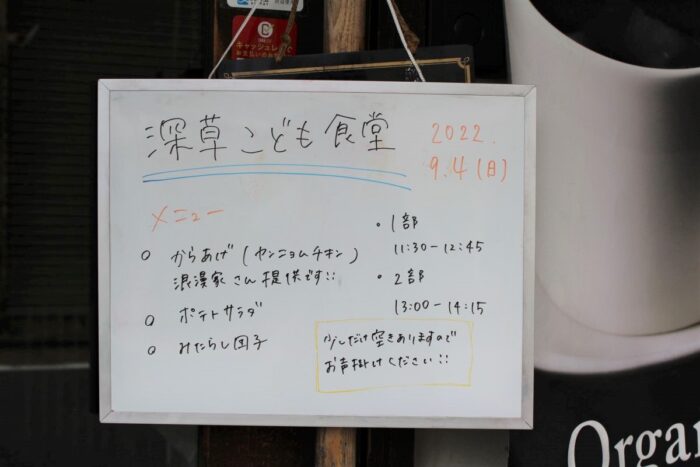 キャッシュレスで
深草こども食堂
2022.
9.4(日)
メニュー
からあげ(ヤンニョムチキン)
浪漫家さん提供です!!
ポテトサラダ
みたらし団子
・1部
11:30-12:45
・2部
13:00-14:15
少しだけ空きありますので
お声掛けください!!
Orga